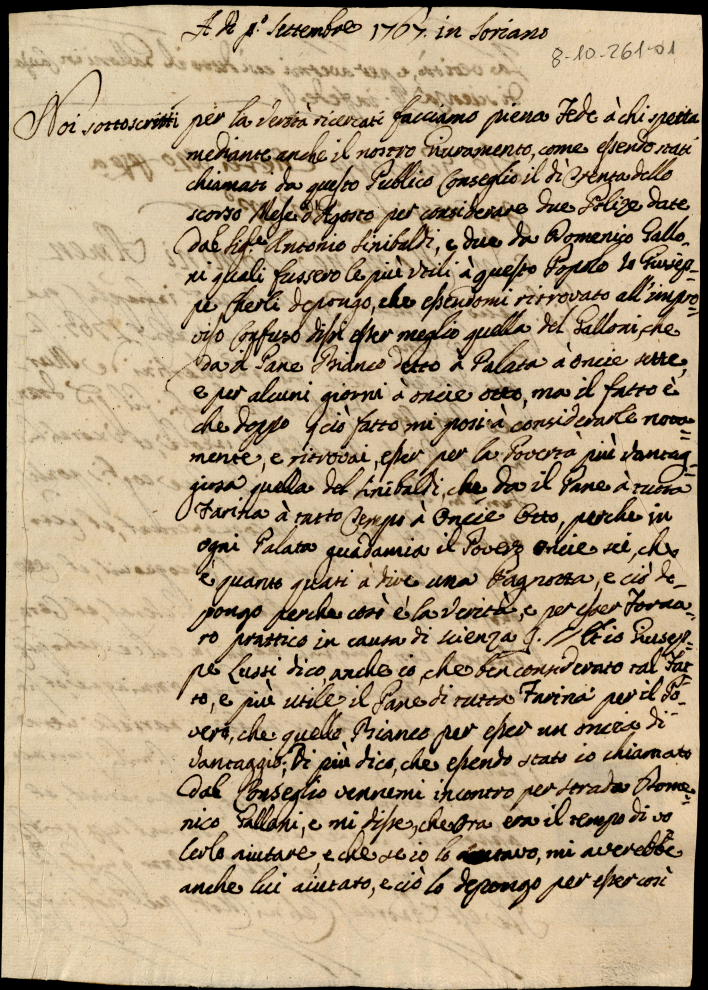 A dì p.º Settembre 1767. in Soriano
8-10-261-01
Noi sottoscritti per la verità ricercati facciamo piena Fede à chi spetta
mediante anche il nostro Giuramento, come essendo stati
chiamati da questo Publico Conseglio il dì trenta dello
scorso Mese d'Agosto per considerare due Polize date
dal Sig.re Antonio Sinibaldi, e due da Domenico Gallo=
ni quali fussero le più utili à questo Popolo Io Giusep=
pe Cherli depongo, che essendomi ritrovato all'impro=
viso confuso dissi esser meglio quella del Galloni, che
da il Pane Bianco detto à Palata à oncie sette,
e per alcuni giorni à oncie otto, ma il fatto è
che doppo ciò fatto mi posi à considerarle nova=
mente, e ritrovai, esser per la Povertà più vantag=
giosa quella del Sinibaldi, che da il Pane à tutta
Farina à tutto tempo à Oncie Otto, perche in
ogni Palata guadamia il Povero oncie sei, che
è quanto quasi à dire una Pagnotta, e ciò de=
pongo perche così è la verità, e per esser Forna=
ro prattico in causa di scienza // Et io Giusep=
pe Lussi dico, anche io, che ben considerato tal Fat=
to, e più utile il Pane di tutta Farina per il Po=
vero, che quello Bianco per esser un oncia di
vantaggio; Di più dico, che essendo stato io chiamato
dal Conseglio vennemi incontro per strada Dome=
nico Galloni, e mi disse, che Ora era il tempo di vo
lerlo aiutare, e che se io lo aiutavo, mi averebbe
anche lui aiutato, e ciò lo depongo per esser così